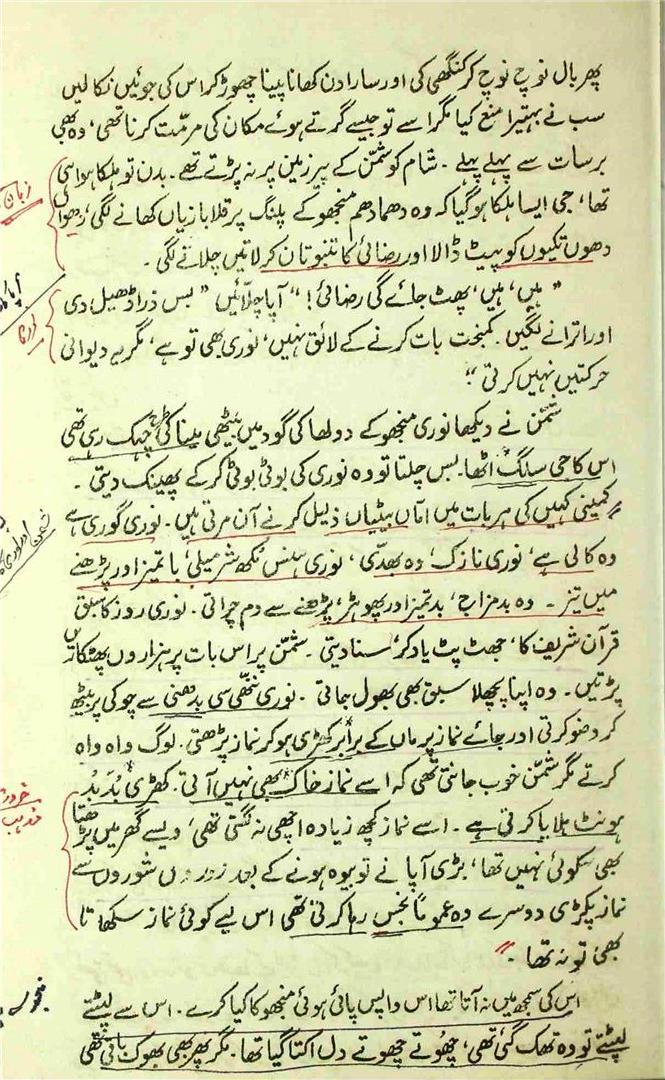 پھر بال نوچ نوچ کر کنگھی کی اور سارا دن کھانا پینا چھوڑ کر اس کی جوئیں نکالیں
سب نے بہتیرا منع کیا مگر اسے تو جیسے گرتے ہوئے مکان کی مرمت کرنا تھی، وہ بھی
برسات سے پہلے پہلے ۔ شام کو شمّن کے پیر زمین پر نہ پڑتے تھے۔ بدن تو ہلکا ہوا ہی
تھا، جی ایسا ہلکا ہو گیا کہ وہ دھمادھم منجھو کے پلنگ پر قلابازیاں کھانے لگی، دھواں
دھوں تکیوں کو پیٹ ڈالا اور رضائی کا تنبو تان کر لاتیں چلانے لگی ۔
"ہیں، ہیں، پھٹ جائے گی رضائی!" آپا چلّائیں "بس ذرا ڈھیل دی
اور اترانے لگیں۔ کمبخت بات کرنے کے لائق نہیں، نوری بھی تو ہے، مگر یہ دیوانی
حرکتیں نہیں کرتی"
شمّن نے دیکھا نوری منجھو کے دولھا کی گود میں بیٹھی مینا کی طرح چہک رہی تھی
اس کا جی سلگ اٹھا۔ بس چلتا تو وہ نوری کی بوٹی بوٹی کر کے پھینک دیتی ۔
کمینی کہیں کی ہر بات میں اماں بیٹیاں ذلیل کرنے آن مرتی ہیں۔ نوری گوری ہے
وہ کالی ہے، نوری نازک، وہ بھدّی، نوری ہنس مکھ شرمیلی، باتمیز اور پڑھنے
میں تیز ۔ وہ بدمزاج، بدتمیز اور پھوہڑ، پڑھنے سے دم چراتی۔ نوری روز کا سبق
قرآن شریف کا، جھٹ پٹ یاد کر، سنا دیتی ۔ شمّن پر اس بات پر ہزاروں پھٹکاریں
پڑتیں۔ وہ اپنا پچھلا سبق بھی بھول جاتی ۔ نوری ننھی سی بدھنی سے چوکی پر بیٹھ
کر وضو کرتی اور جائے نماز پر ماں کے برابر کھڑی ہو کر نماز پڑھتی۔ لوگ واہ واہ
کرتے مگر شمّن خوب جانتی تھی کہ اسے نماز خاک بھی نہیں آتی۔ کھڑی بُدبُد
ہونٹ ہلایا کرتی ہے ۔ اسے نماز کچھ زیادہ اچھی نہ لگتی تھی، ویسے گھر میں پڑھتا
بھی کوئی نہیں تھا، بڑی آپا نے تو بیوہ ہونے کے بعد زوروں شوروں سے
نماز پکڑی دوسرے وہ عموماً نجس رہا کرتی تھی اس لیے کوئی نماز سکھاتا
بھی تو نہ تھا ۔
اس کی سمجھ میں نہ آتا تھا اس واپس پائی ہوئی منجھو کا کیا کرے۔ اس سے لپٹتے
لپٹتے تو وہ تھک گئی تھی، چھوتے چھوتے دل اکتا گیا تھا۔ مگر پھر بھی بھوک باقی تھی
زبان